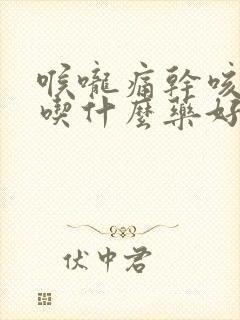 喉嚨痛幹咳
喫什麼藥好
伏中君